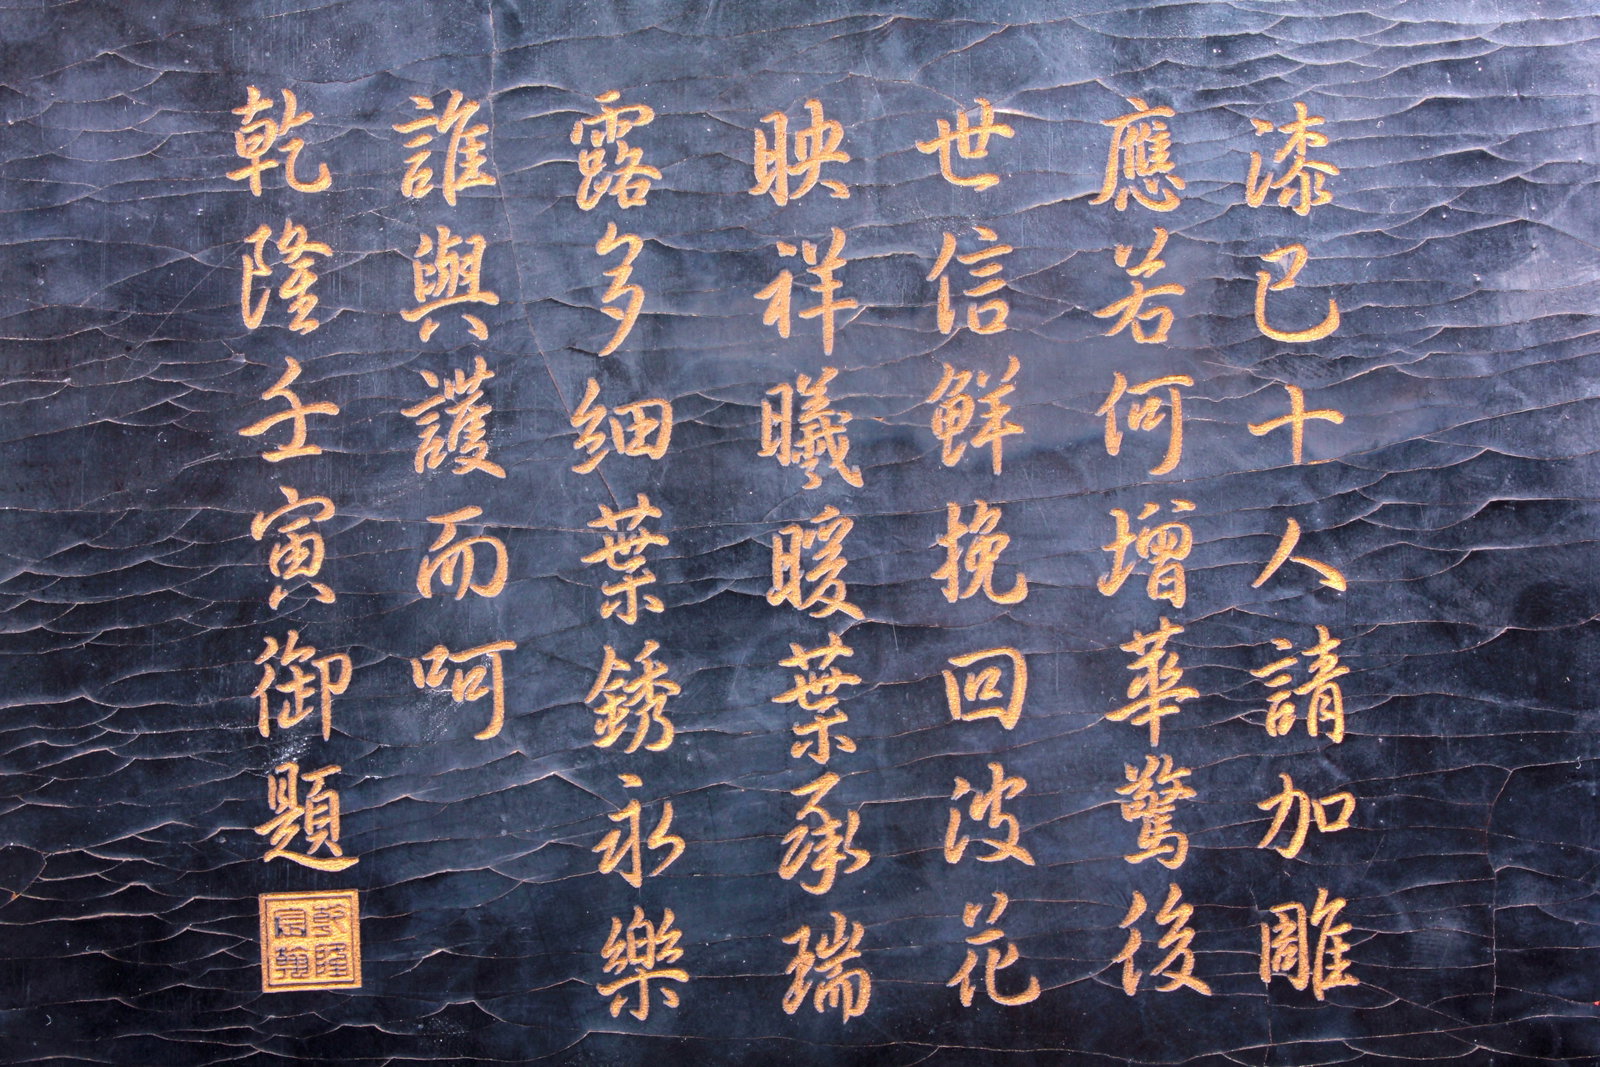 漆已十人請加雕
應若何增華驚後
世信鮮挽回波花
映祥曦暖葉承瑞
露多細葉銹永樂
誰與護而呵
乾隆壬寅御題
乾隆宸翰